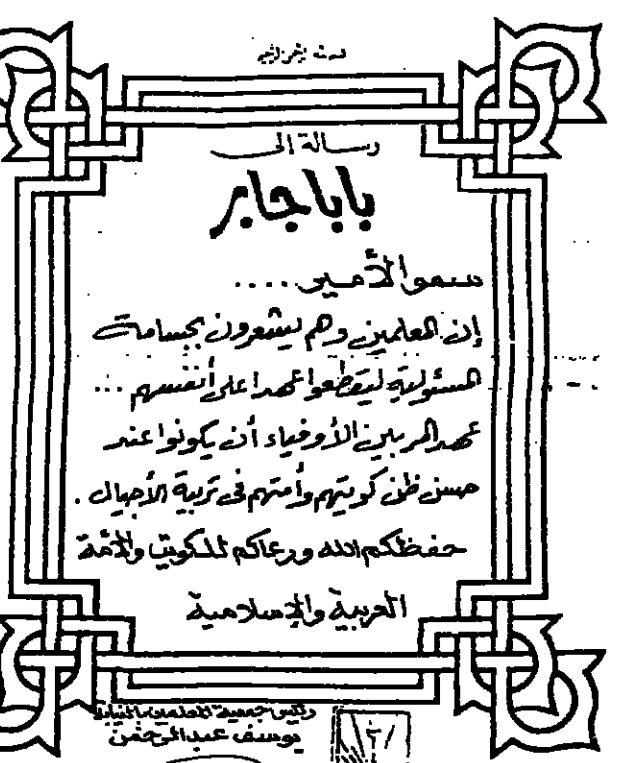 رسالة إلى
بابا جابر
سمو الأمير.....
إن المعلمين وهم ليشعرون بجسامة
المسئولية ليقطعوا عهدا على أنفسهم ...
عهد المربين الأوفياء أن يكونوا عند
حسن ظن كويتهم وأمتهم في تربية الأجيال .
حفظكم الله ورعاكم للكويت والأمة
العربية والإسلامية
رئيس جمعية المعلمين بالنيابة
يوسف عبدالرحمن